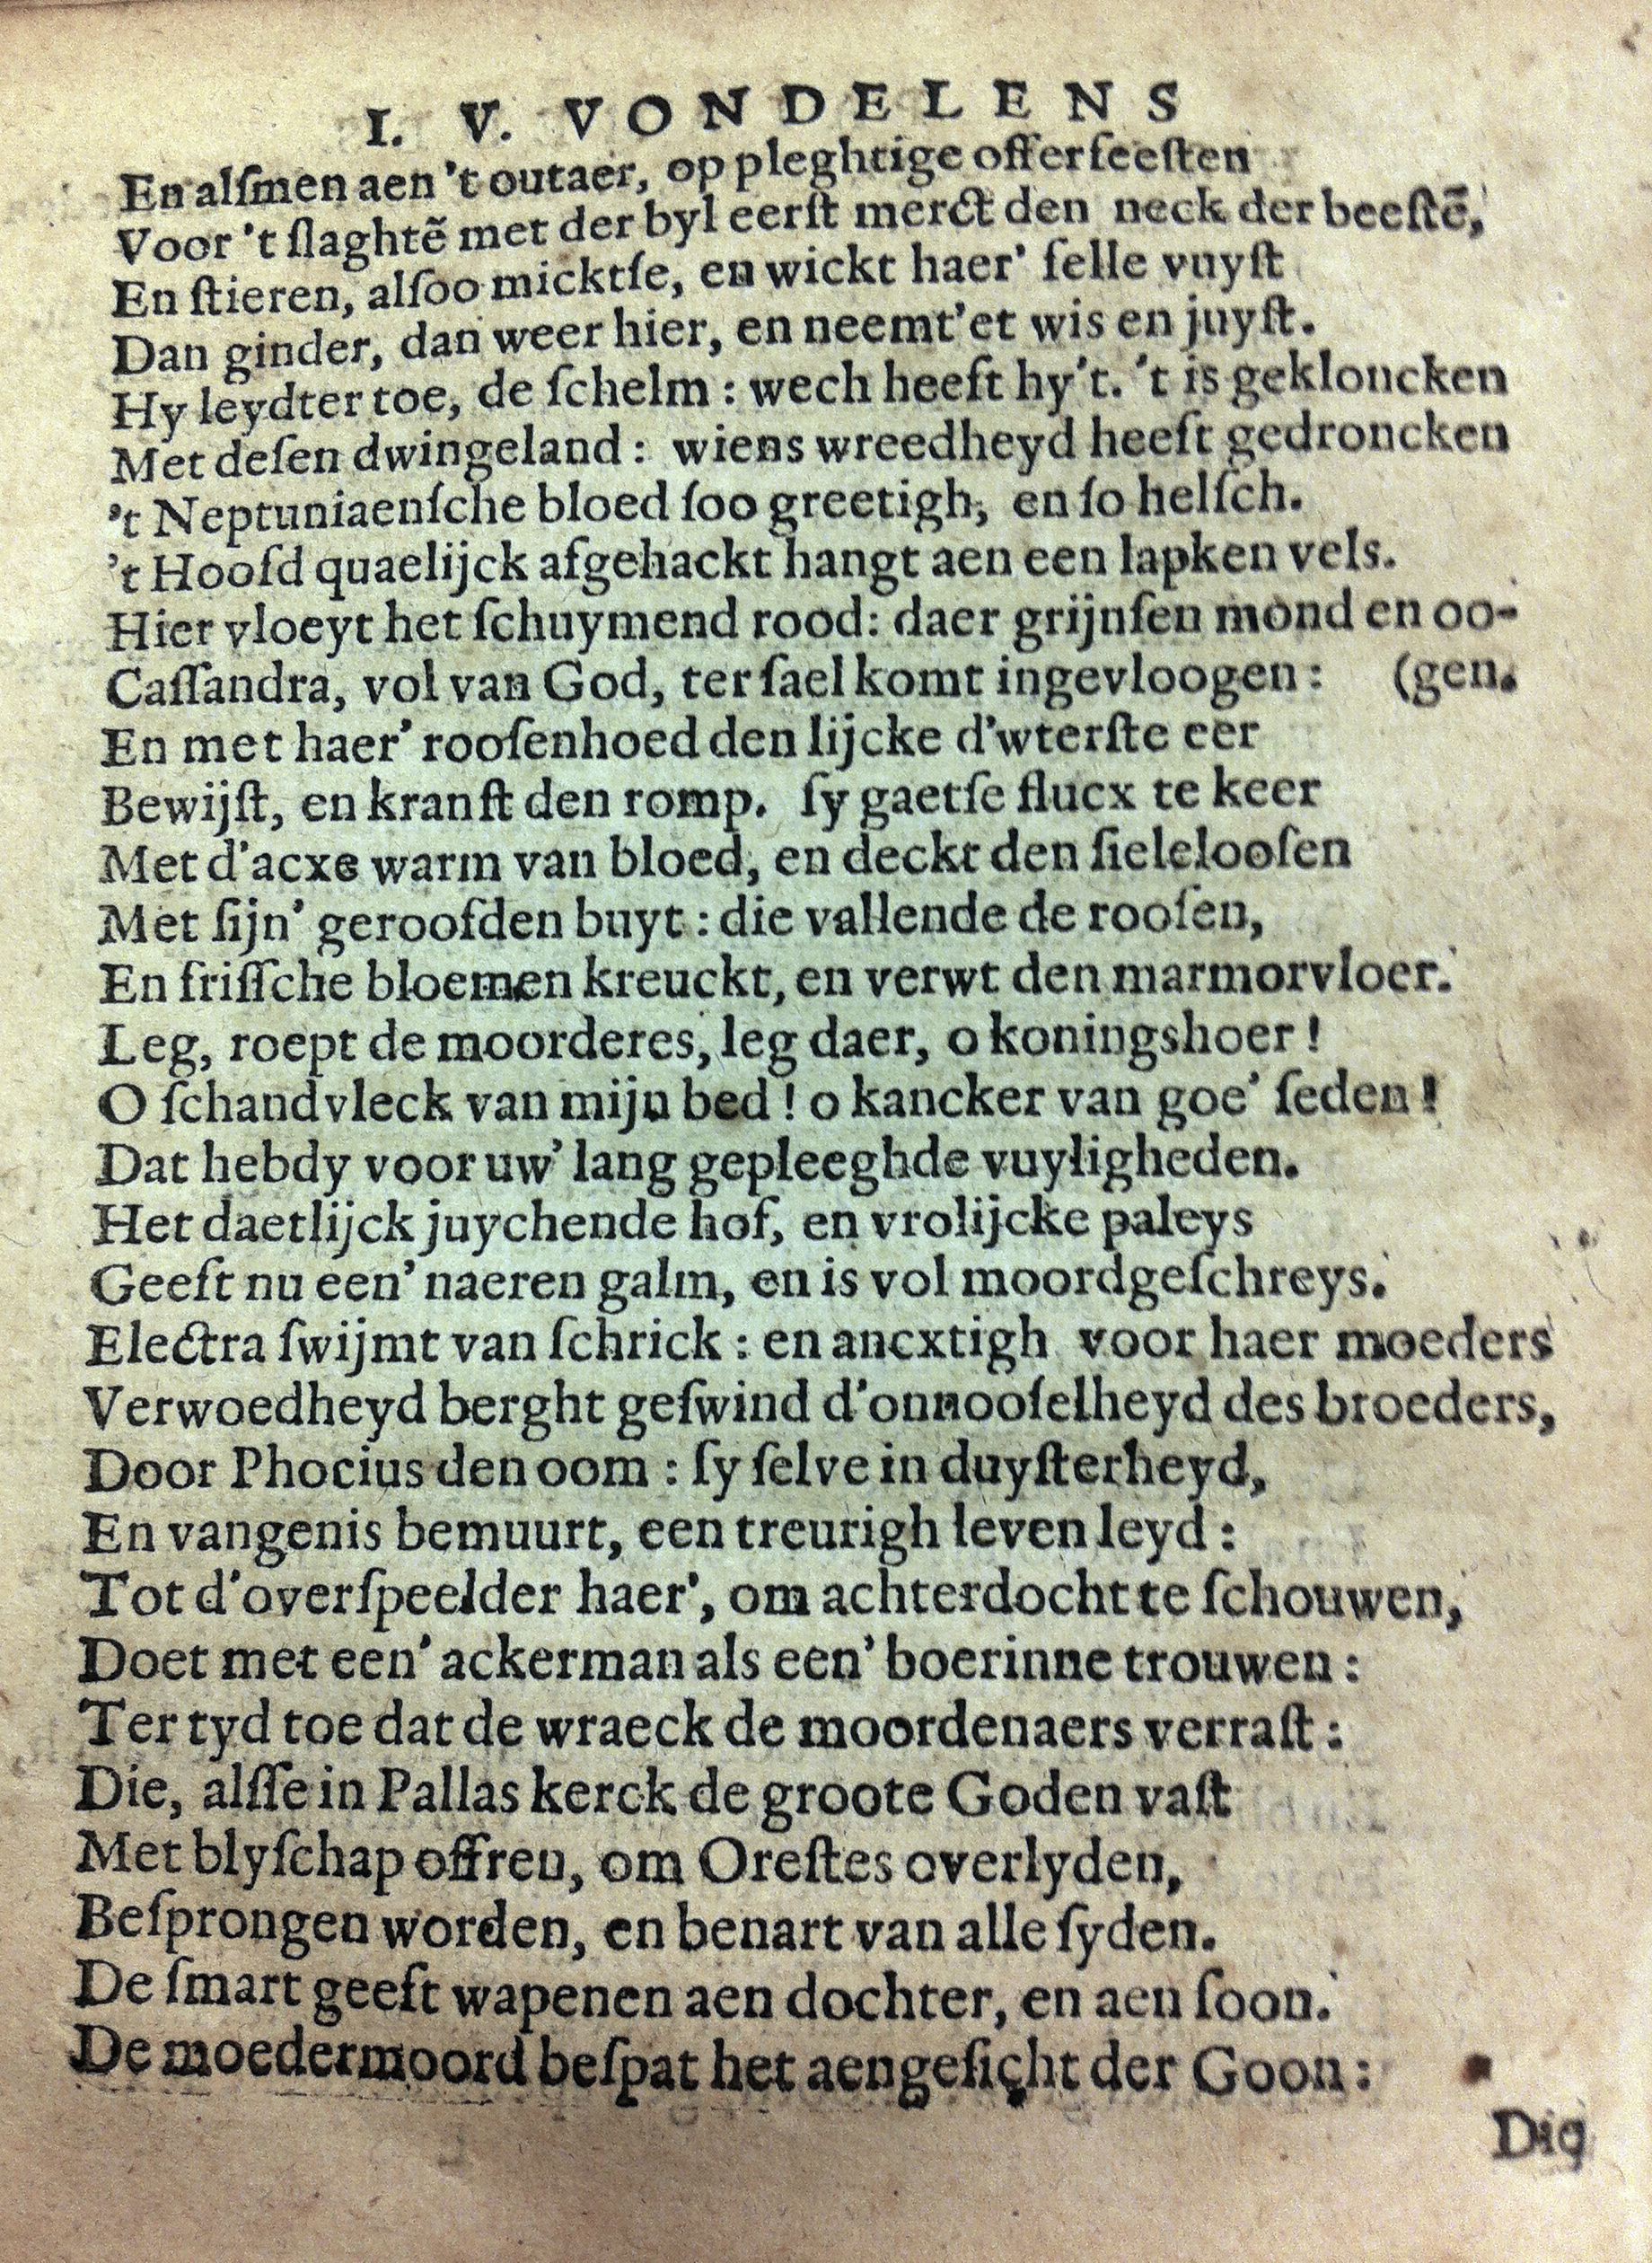 I. V. VONDELENS
En alſmen aen 't outaer, op pleghtige offerfeeſten
Voor 't ſlaghtẽ met der byl eerſt merct den neck der beeſtẽ,
En ſtieren, alſoo micktſe, en wickt haer' felle vuyſt
Dan ginder, dan weer hier, en neemt'et wis en juyſt.
Hy leydter toe, de ſchelm : wech heeft hy't. 't is gekloncken
Met deſen dwingeland : wiens wreedheyd heeft gedroncken
't Neptuniaenſche bloed ſoo greetigh, en ſo helſch.
't Hoofd quaelijck afgehackt hangt aen een lapken vels.
Hier vloeyt het ſchuymend rood: daer grijnſen mond en oo-
Caſſandra, vol van God, ter ſael komt ingevloogen : (gen.
En met haer' rooſenhoed den lijcke d'wterſte eer
Bewijſt, en kranſt den romp. ſy gaetſe flucx te keer
Met d'acxe warm van bloed, en deckt den ſieleloosen
Met ſijn' geroofden buyt : die vallende de rooſen,
En friſſche bloemen kreuckt, en verwt den marmorvloer.
Leg, roept de moorderes, leg daer, o koningshoer !
O ſchandvleck van mijn bed ! o kancker van goe' ſeden !
Dat hebdy voor uw' lang gepleeghde vuyligheden.
Het daetlijck juychende hof, en vrolijcke paleys
Geeft nu een' naeren galm, en is vol moordgeſchreys.
Electra ſwijmt van ſchrick : en ancxtigh voor haer moeders
Verwoedheyd berght geſwind d'onnooſelheyd des broeders,
Door Phocius den oom : ſy ſelve in duyſterheyd,
En vangenis bemuurt, een treurigh leven leyd :
Tot d'overſpeelder haer', om achterdocht te ſchouwen,
Doet met een' ackerman als een' boerinne trouwen :
Ter tyd toe dat de wraeck de moordenaers verraſt :
Die, alſſe in Pallas kerck de groote Goden vaſt
Met blyſchap offren, om Oreſtes overlyden,
Beſprongen worden, en benart van alle ſyden.
De ſmart geeft wapenen aen dochter, en aen ſoon.
De moedermoord beſpat het aengeſicht der Goon :
Die